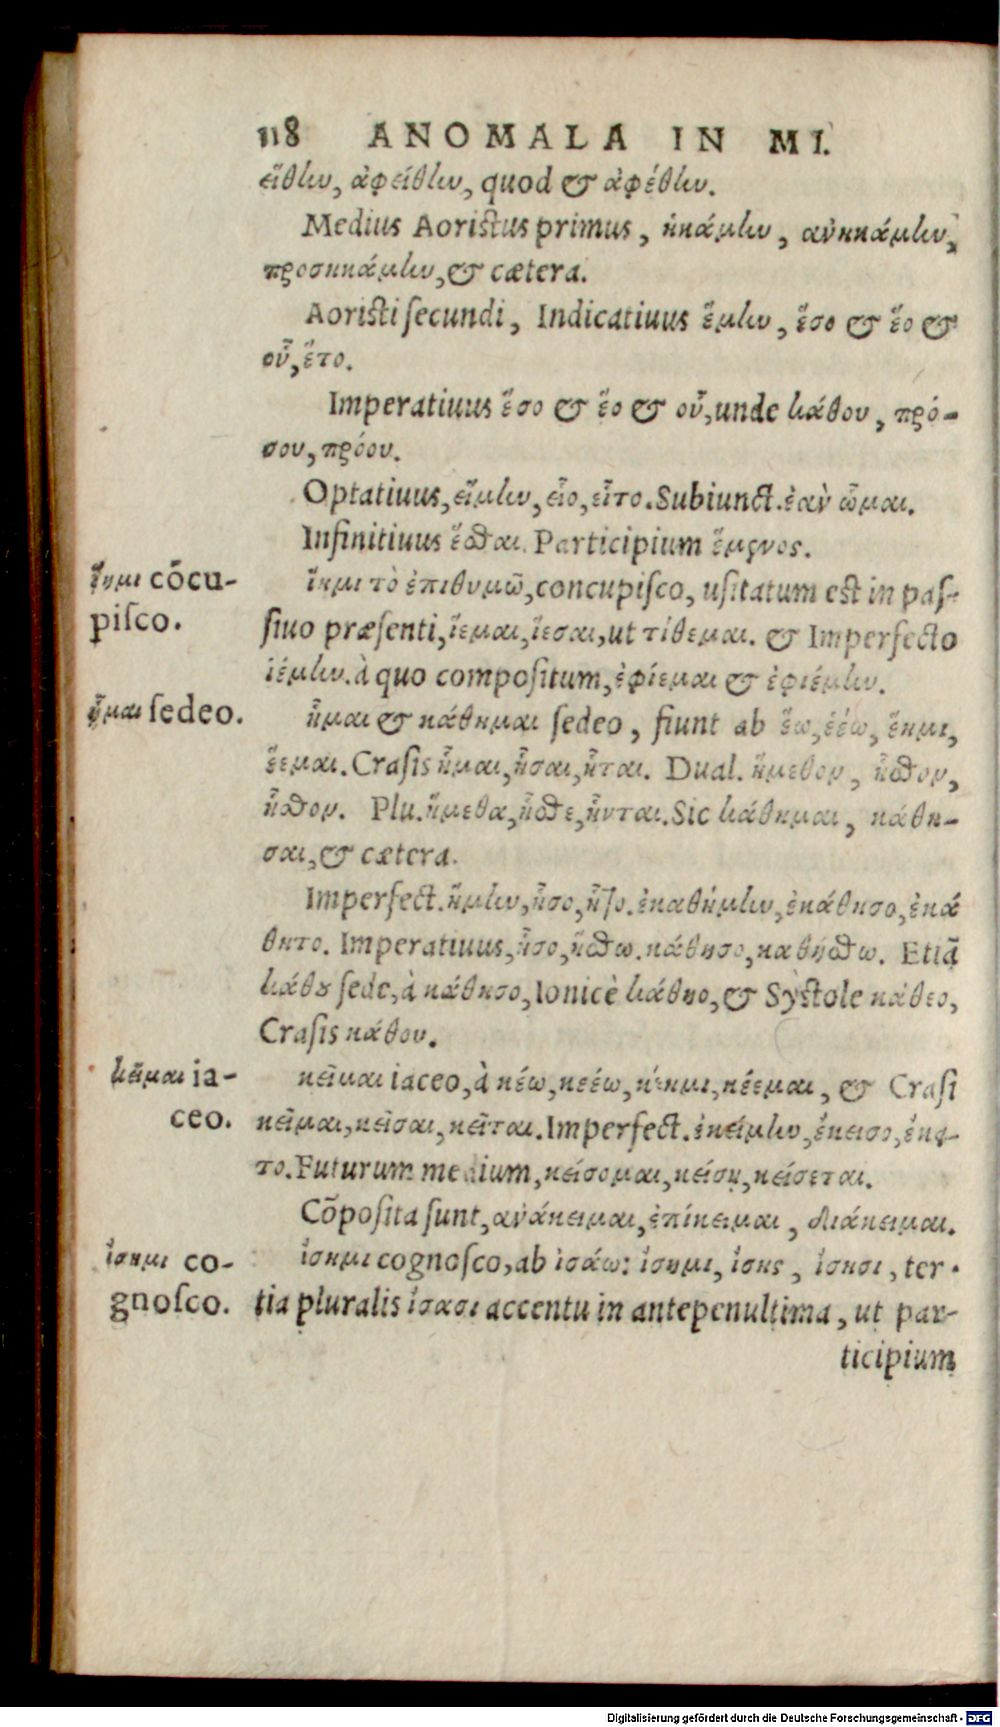 118 ANOMALA IN MI.
εἵθην, ἀφείθην, quod & ἀφέθην.
Medius Aoristus primus, ἡκάμην, ἀνηκάμην,
προσηκάμην, & cætera.
Aoristi secundi, Indicatiuus ἕμην, ἕσο & ἕο &
οὗ, ἕτο.
Imperatiuus ἕσο & ἕο & οὗ, unde κάθου, πρό-
σου, πρόου.
Optatiuus, εἵμην, εἷο, εἷτο. Subiunct. ἐὰν ὧμαι.
Infinitiuus ἕσθαι. Participium ἕμενος.
ἵημι cōcu-
pisco.
ἵημι τὸ ἐπιθυμῶ, concupisco, usitatum est in pas-
siuo præsenti, ἵεμαι, ἵεσαι, ut τίθεμαι. & Imperfecto
ἱέμην. à quo compositum, ἐφίεμαι & ἐφιέμην.
ἧμαι sedeo.
ἧμαι & κάθημαι sedeo, fiunt ab ἕω, ἑέω, ἕημι,
ἕεμαι. Crasis ἧμαι, ἧσαι, ἧται. Dual. ἥμεθον, ἧσθον,
ἧσθον. Plu. ἥμεθα, ἧσθε, ἧνται. Sic κάθημαι, κάθη-
σαι, & cætera.
Imperfect. ἥμην, ἧσο, ἧτο. ἐκαθήμην, ἐκάθησο, ἐκά
θητο. Imperatiuus, ἧσο, ἥσθω. κάθησο, καθήσθω. Etiā
κάθου sede, à κάθησο, Ionicè κάθηο, & Systole κάθεο,
Crasis κάθου.
κεῖμαι ia-
ceo.
κεῖμαι iaceo, à κέω, κεέω, κέημι, κέεμαι, & Crasi
κεῖμαι, κεῖσαι, κεῖται. Imperfect. ἐκείμην, ἔκεισο, ἔκει-
το. Futurum medium, κείσομαι, κείσῃ, κείσεται.
Cōposita sunt, ἀνάκειμαι, ἐπίκειμαι, διάκειμαι.
ἴσημι co-
gnosco.
ἴσημι cognosco, ab ἰσάω: ἴσημι, ἴσης, ἴσησι, ter-
tia pluralis ἴσασι accentu in antepenultima, ut par-
ticipium
Digitalisierung gefördert durch die Deutsche Forschungsgemeinschaft - DFG